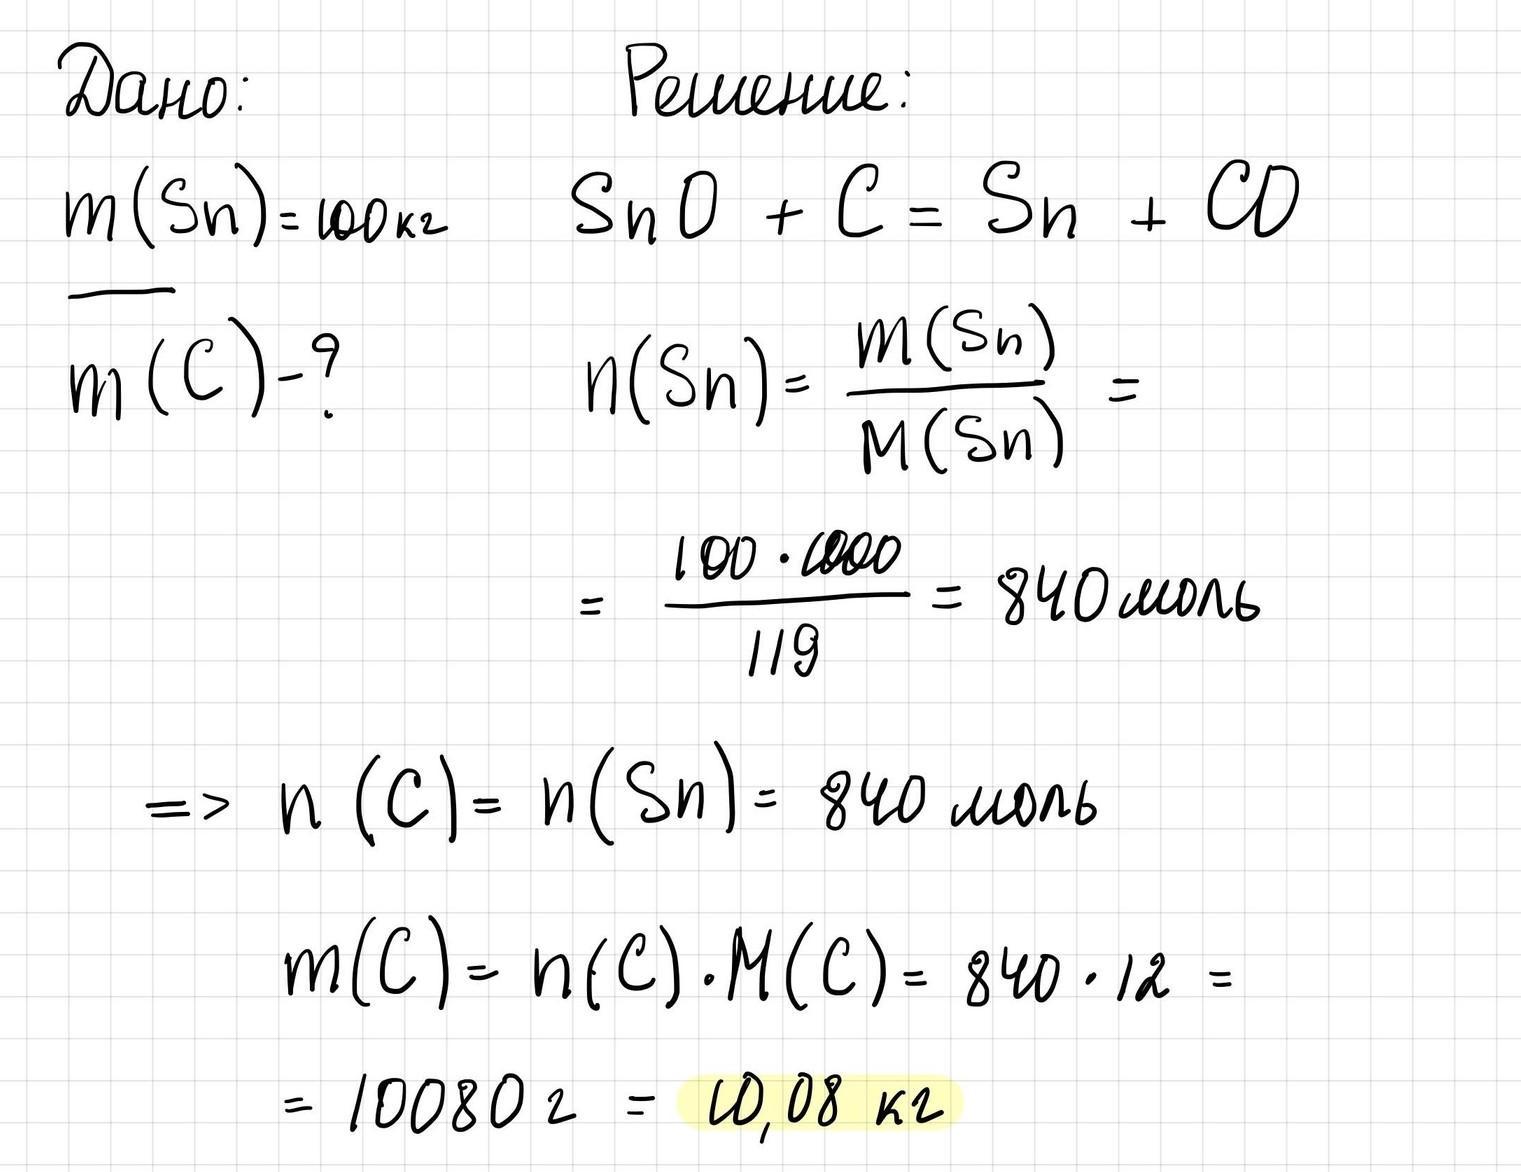 Дано:
Решение:
m(Sn) = 100 кг
SnO + C = Sn + CO
m(C) - ?
n(Sn) = m(Sn) / M(Sn) =
= 100 · 1000 / 119 = 840 моль
=> n(C) = n(Sn) = 840 моль
m(C) = n(C) · M(C) = 840 · 12 =
= 10080 г = 10,08 кг